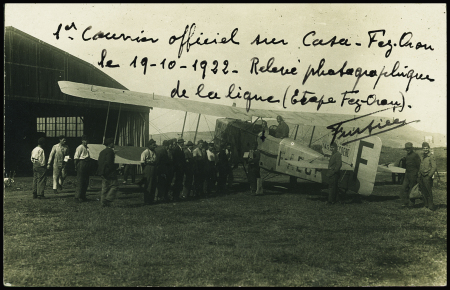 1er Courrier officiel sur Casa-Fez-Oran
le 19-10-1922. Relevé photographique
de la ligne (Etape Fez-Oran).
F